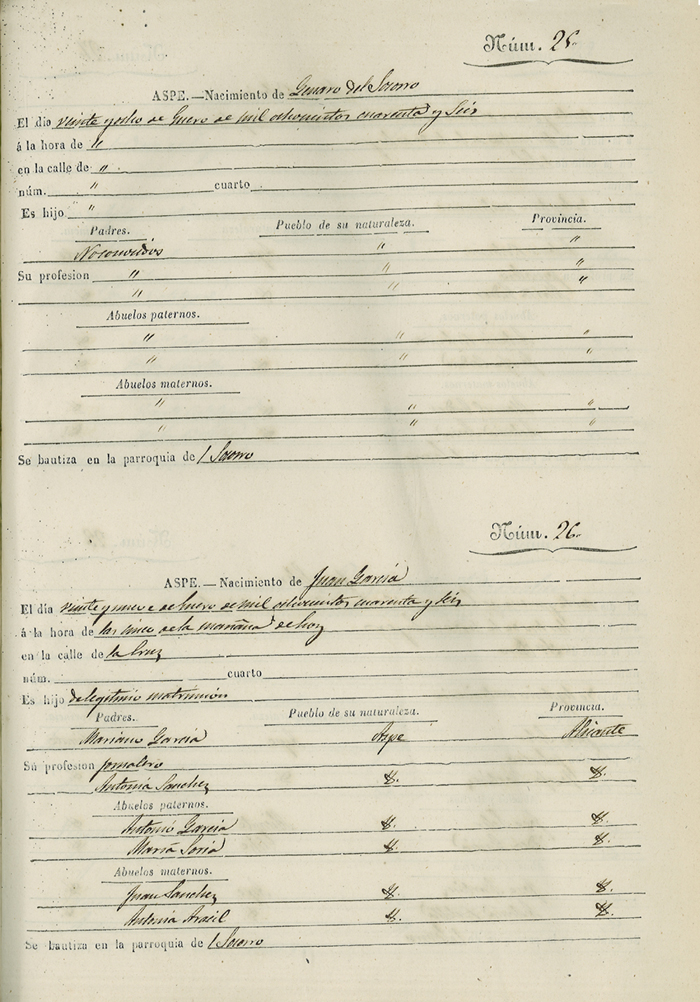 Núm. 25.
ASPE.—Nacimiento de Genaro del Socorro
El dia veinte y ocho de Enero de mil ochocientos cuarenta y Seis
á la hora de "
en la calle de "
núm. " cuarto
Es hijo "
Padres. Pueblo de su naturaleza. Provincia.
No conocidos " "
Su profesion " "
" " "
Abuelos paternos.
" " "
" " "
Abuelos maternos.
" " "
" " "
Se bautiza en la parroquia del Socorro
Núm. 26.
ASPE.—Nacimiento de Juan Garcia
El dia veinte y nueve de Enero de mil ochocientos cuarenta y Seis
á la hora de las cinco de la mañana de hoy
en la calle de la Cruz
núm. cuarto
Es hijo de legitimo matrimonio
Padres. Pueblo de su naturaleza. Provincia.
Mariano Garcia Aspe Alicante
Su profesion jornalero
Antonia Sanchez
Abuelos paternos.
Antonio Garcia
Maria Soria
Abuelos maternos.
Juan Sanchez
Antonia Aracil
Se bautiza en la parroquia del Socorro